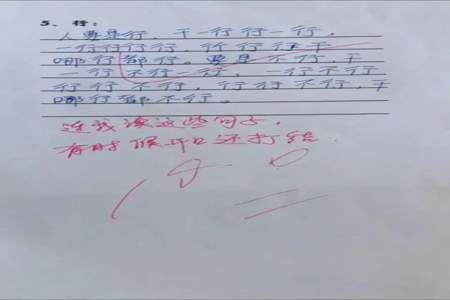 5、行：
人要是行，干一行行一行，
一行行行行，行行行干
哪行都行。要是不行，干
一行不行一行，一行不行
行行不行，行行不行，干
哪行都不行。
连我读这些句子，
有时候开口还打结